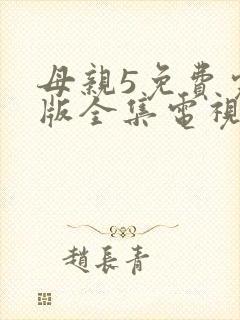 母親5免費
版全集電視
趙長青